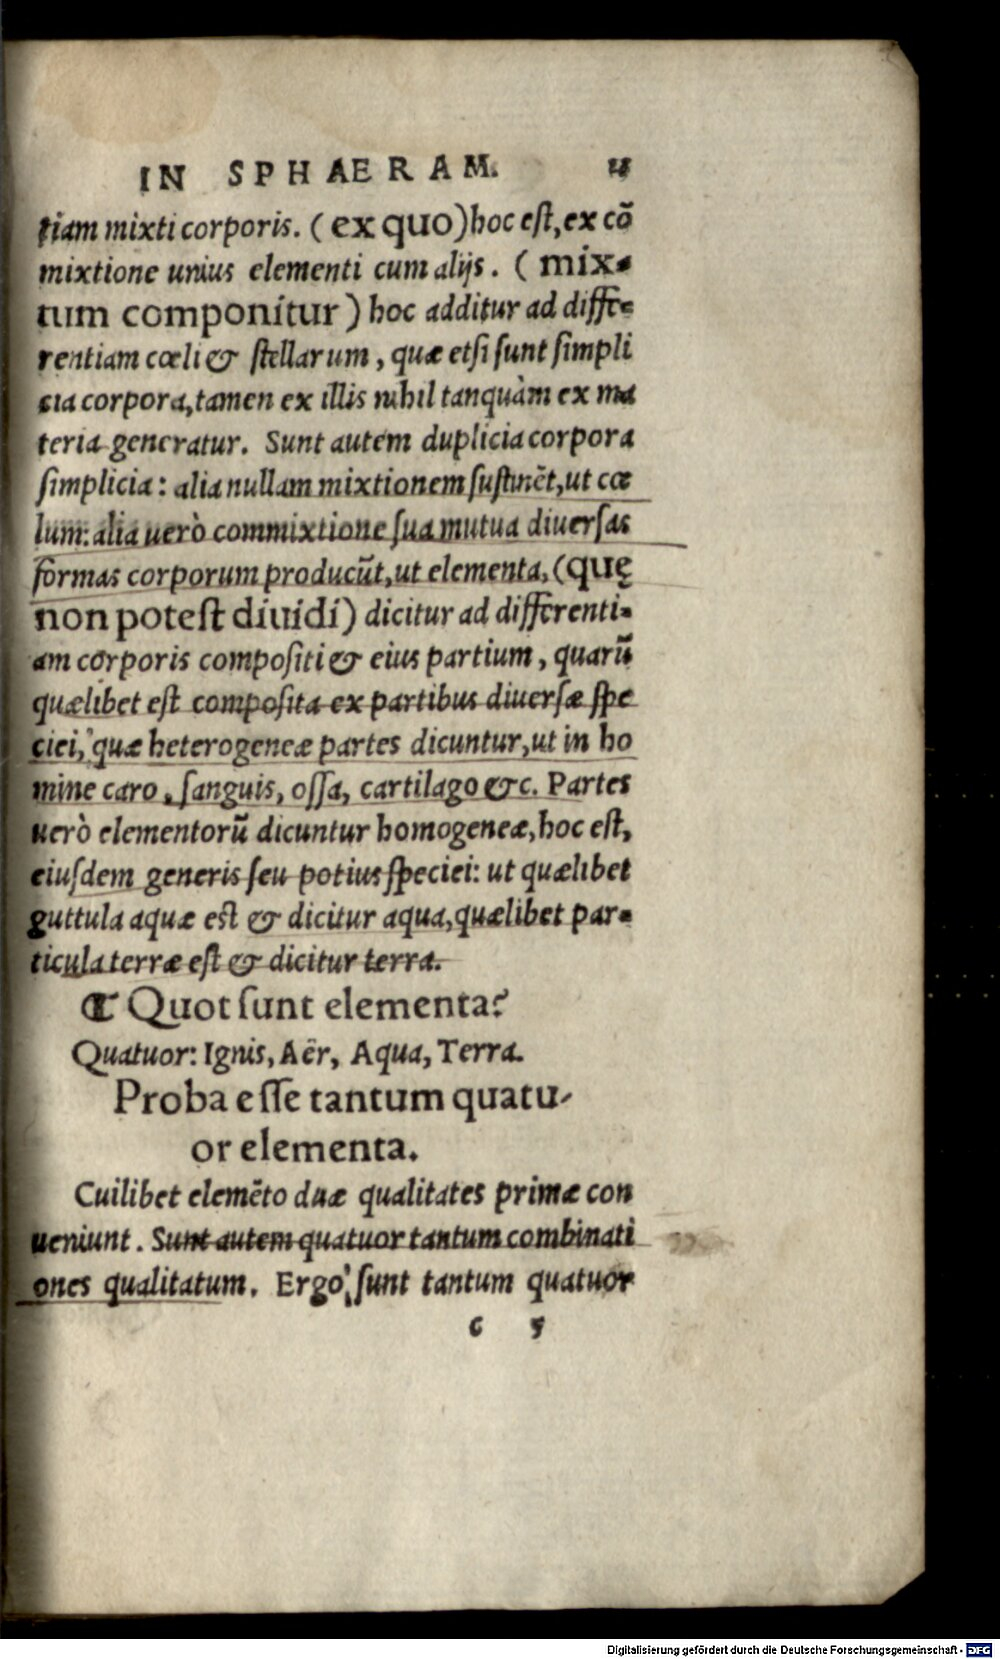 IN SPHAERAM.
tiam mixti corporis. (ex quo) hoc est, ex cõ
mixtione unius elementi cum alijs. (mix-
tum componitur) hoc additur ad diffe-
rentiam cœli & stellarum, quæ etsi sunt simpli
cia corpora, tamen ex illis nihil tanquàm ex ma
teria generatur. Sunt autem duplicia corpora
simplicia: alia nullam mixtionem sustinẽt, ut cœ
lum: alia uerò commixtione sua mutua diuersas
formas corporum producũt, ut elementa, (quę
non potest diuidi) dicitur ad differenti-
am corporis compositi & eius partium, quarũ
quælibet est composita ex partibus diuersæ spe
ciei, quæ heterogeneæ partes dicuntur, ut in ho
mine caro, sanguis, ossa, cartilago &c. Partes
uerò elementorũ dicuntur homogeneæ, hoc est,
eiusdem generis seu potius speciei: ut quælibet
guttula aquæ est & dicitur aqua, quælibet par-
ticula terræ est & dicitur terra.
¶ Quot sunt elementa?
Quatuor: Ignis, Aër, Aqua, Terra.
Proba esse tantum quatu-
or elementa.
Cuilibet elemẽto duæ qualitates primæ con
ueniunt. Sunt autem quatuor tantum combinati
ones qualitatum. Ergo sunt tantum quatuor
c 5
Digitalisierung gefördert durch die Deutsche Forschungsgemeinschaft - DFG